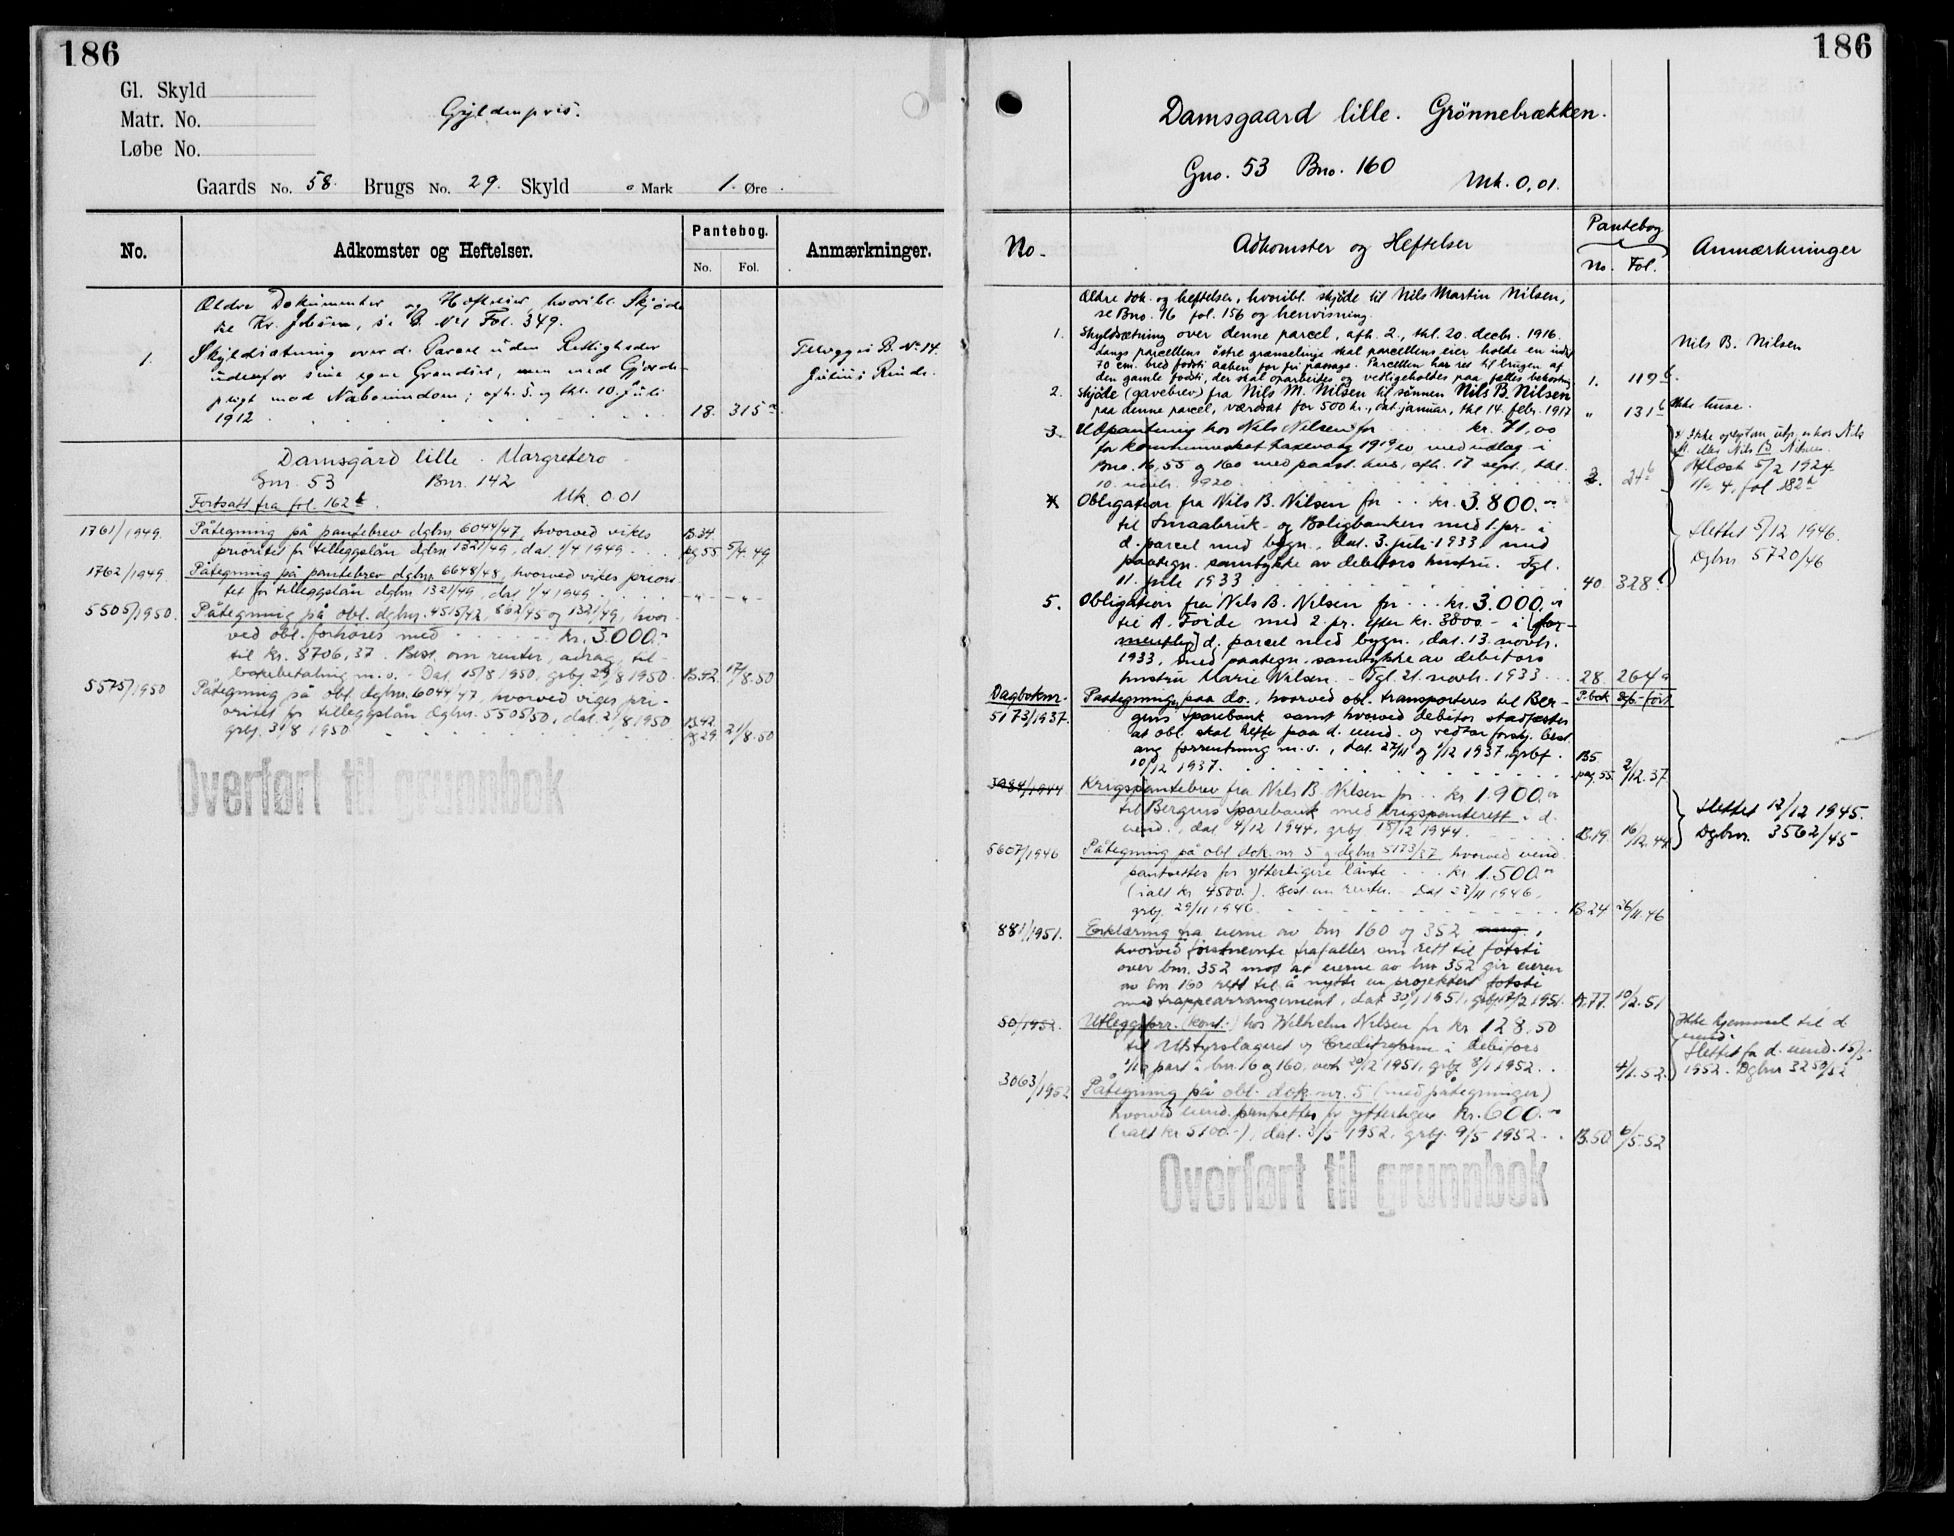 186
Gl. Skyld
Matr. No.
Løbe No.
Gyldenpris.
Gaards No. 58. Brugs No. 29. Skyld " Mark 1. Øre.
No. Adkomster og Heftelser. Pantebog. No. Fol. Anmærkninger.
Ældre Dokumenter og Heftelser, hvoribl. Skjøde
til Kr. Jebsen, se B. No 1 Fol. 349.
1. Skyldsætning over d. Parcel uden Rettigheder
udenfor sine egne Grændser, men med Gjerde-
pligt mod Naboeiendom; afh. 5. og thl. 10. Juli
1912 18. 315
Tillægges B. No 14.
Julius Rinde.
Damsgård lille. Margretero
Gnr. 53 Bnr. 142
Mk 0.01
Fortsatt fra fol. 162 b
1761/1949. Påtegning på pantebrev dgbnr 6044/47, hvorved vikes B.34.
prioritet for tilleggslån dgbnr 1321/49, dat. 1/4 1949 pg 55 5/4. 49
1762/1949. Påtegning på pantebrev dgbnr. 6648/48, hvorved vikes priori-
tet for tilleggslån dgbnr 1321/49, dat 1/4 1949 - " - - " -
5505/1950. Påtegning på obl. dgbnr. 4515/42, 862/45 og 1321/49, hvor-
ved obl. forhøies med kr. 3.000.-
til kr. 8706,37. Best. om renter, avdrag, til-
bakebetaling m.v. - Dat. 15/8 1950, grbj. 29/8 1950. B.42. 17/8.50
5575/1950 Påtegning på obl. dgbnr. 6044/47, hvorved viges pri-
oritet for tilleggslån dgbnr. 5505/50, dat. 21/8 1950 B.42.
grbj. 31/8 1950 pg 29. 21/8.50
Overført til grunnbok
186
Damsgaard lille. Grönnebrækken.
Gno. 53 Bno. 160
Mk. 0,01.
No. Adkomster og Heftelser Pantebog No. Fol. Anmærkninger
Ældre dok. og heftelser, hvoribl. skjöde til Nils Martin Nilsen,
se Bno. 16 fol. 156 og henvisning.
1. Skyldsætning over denne parcel, afh. 2., thl. 20. decbr. 1916.
Langs parcellens östre grænselinje skal parcellens eier holde en indtil
70 cm. bred fodsti aaben for fri passage. Parcellen har ret til brugen af
den gamle fodsti, der skal oparbeides og vedligeholdes paa fælles bekostning 1. 119
Nils B. Nilsen
2. Skjöde (gavebrev) fra Nils M. Nilsen til sönnen Nils B. Nilsen
paa denne parcel, værdsat for 500 kr., dat. januar, thl 14. febr. 1917 " 131 b
Ikke huse.
3. Udpantning hos Nils Nilsen for kr. 71,00
for kommuneskat Laxevaag 1919/20 med udlæg i
Bno. 16, 55 og 160 med paast. hus, afh. 17 sept., thl.
10. novbr. 1920 2. 21 b
Ikke oplyst om utp. er hos Nils
M. eller Nils B. Nilsen.
Avlæst 5/2 1924.
No 4, fol 182
4 Obligation fra Nils B. Nilsen for kr. 3.800.-
til Småabruk- og Boligbanken med 1. pr. i
d. parcel med bygn., dat. 3. juli 1933, med
paategn. samtykke av debitors hustru. Tgl.
11. juli 1933 40. 328
Slettet 5/12 1946.
Dgbnr 5720/46
5. Obligation fra Nils B. Nilsen for kr. 3.000.-
til A. Förde med 2. pr. efter kr. 3800.- i (for-
mentlig) d. parcel med bygn., dat. 13. novbr.
1933, med paategn. samtykke av debitors
hustru Marie Nilsen. - Tgl. 21. novbr. 1933 28. 264 a
Dagboknr. P.bok Dgb.-ført
5173/1937. Paategning paa do., hvorved obl. transporteres til Ber-
gens Sparebank samt hvorved debitor stadfæster
at obl. skal hefte paa d. eiend. og vedtar forskj. best.
ang. forrentning m.v., dat. 27/11 og 1/12 1937, grbf.
10/12 1937. B5 pag. 55. 2/12.37.
3984/1944 Krigspantebrev fra Nils B. Nilsen for kr. 1.900.-
til Bergens Sparebank med krigspanterett i d.
eiend., dat. 4/12 1944, grbf. 18/12 1944. B.19. 16/12.44
Slettet 12/12 1945.
Dgbnr. 3562/45
5607/1946 Påtegning på obl. dok. nr 5 og dgbnr 5173/37, hvorved eiend.
pantsettes for ytterligere lånte kr. 1.500.-
(ialt kr. 4500.-). Best. om renter. - Dat 23/11 1946,
grbj. 29/11 1946. B.24 26/11.46
881/1951. Erklæring fra eierne av bnr 160 og 352,
hvorved førstnevnte frafaller sin rett til fotsti
over bnr. 352 mot at eierne av bnr 352 gir eieren
av bnr 160 rett til å nytte en projektert fotsti
med trappearrangement, dat. 30/1 1951, grbj. 17/2 1951. A.77. 10/2.51
50/1952. Utleggsforr. (kont.) hos Wilhelm Nilsen for kr 128.50
til Utstyrslageret og Creditreform i debitors
1/10 part i bnr. 16 og 160, avh. 20/12 1951, grbj 8/1 1952. 4/1.52.
Ikke hjemmel til d.
eiend.
Slettet fra d. eiend. 15/5
1952. Dgbnr 3250/52
3063/1952 Påtegning på obl. dok. nr. 5 (med påtegninger)
hvorved eiend. pantsettes for ytterligere kr. 600.-
(ialt kr 5100.-), dat. 3/5 1952, grbj. 9/5 1952. B.50 6/5.52
Overført til grunnbok